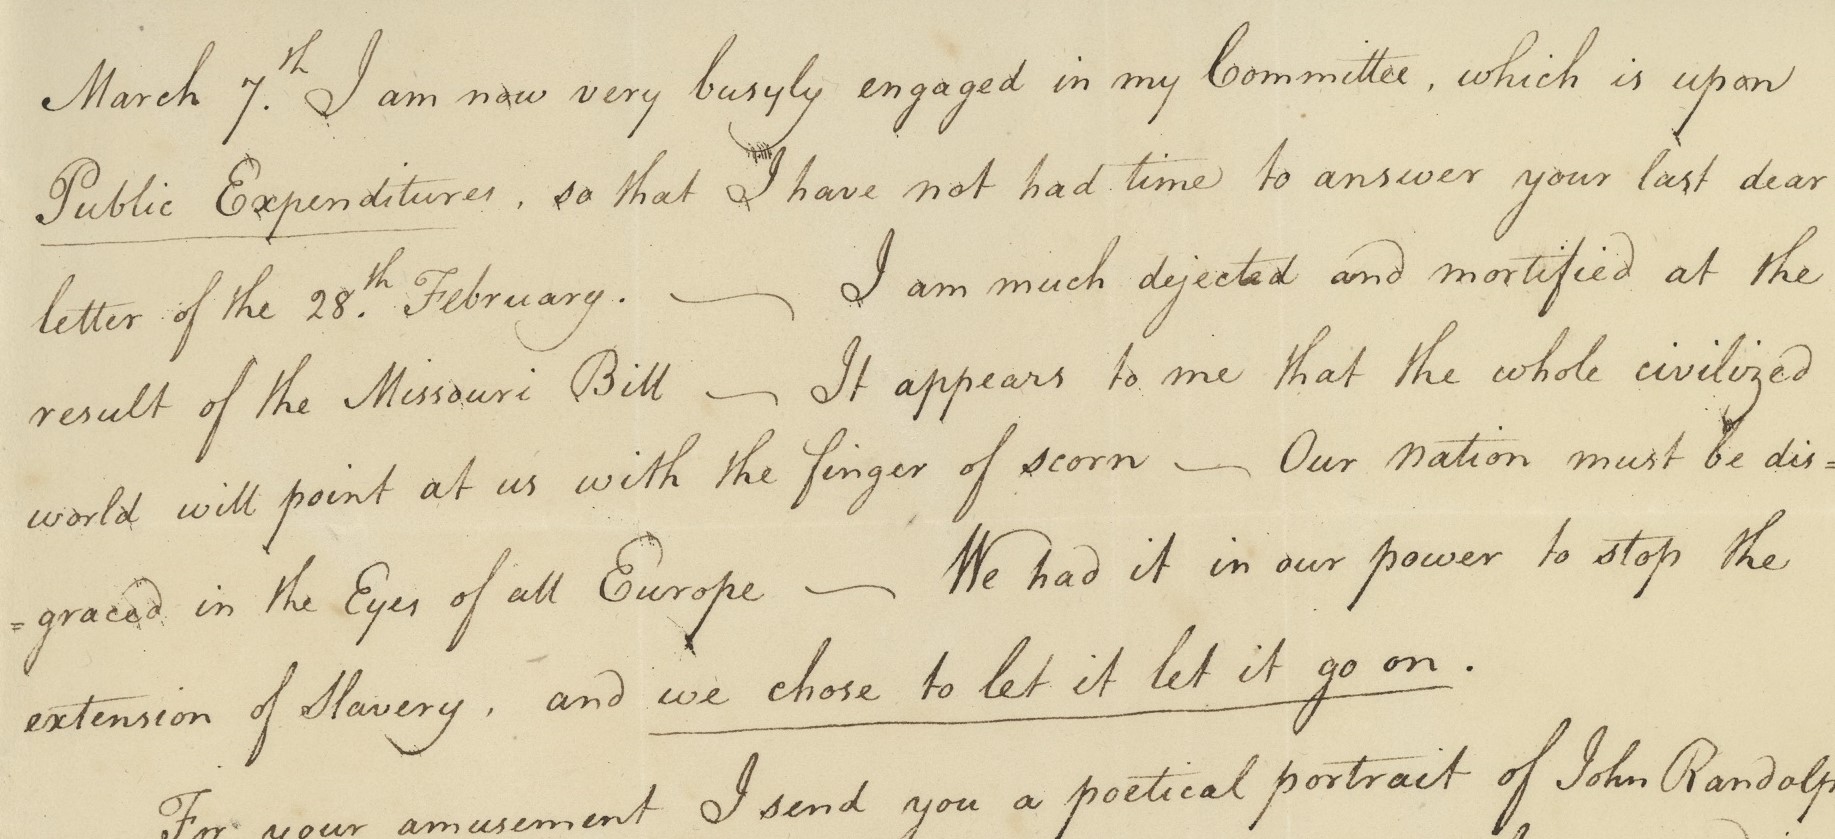 March 7.th I am now very busyly engaged in my Committee, which is upon
Public Expenditures, so that I have not had time to answer your last dear
letter of the 28.th February. — I am much dejected and mortified at the
result of the Missouri Bill — It appears to me that the whole civilized
world will point at us with the finger of scorn — Our nation must be dis=
=graced in the Eyes of all Europe — We had it in our power to stop the
extension of Slavery, and we chose to let it let it go on.
For your amusement I send you a poetical portrait of John Randolp